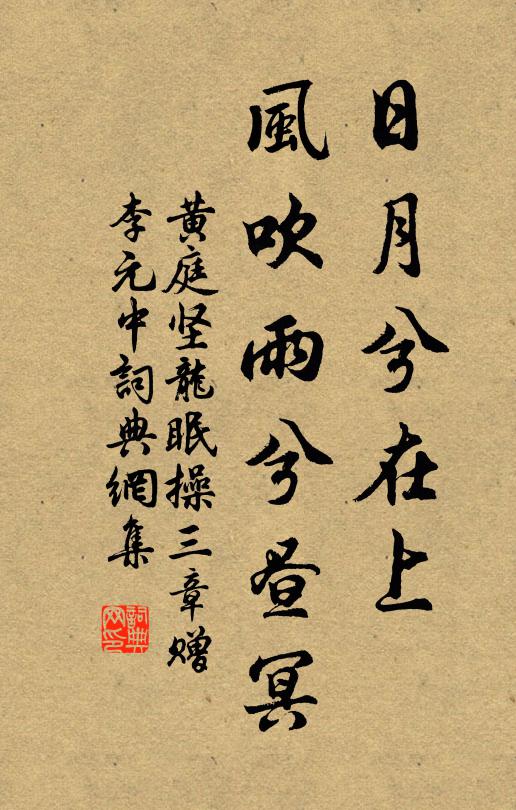 日月兮在上
風吹雨兮昼冥
黄庭坚龍眠操三章贈
李元中詞典網集
詞典
网印